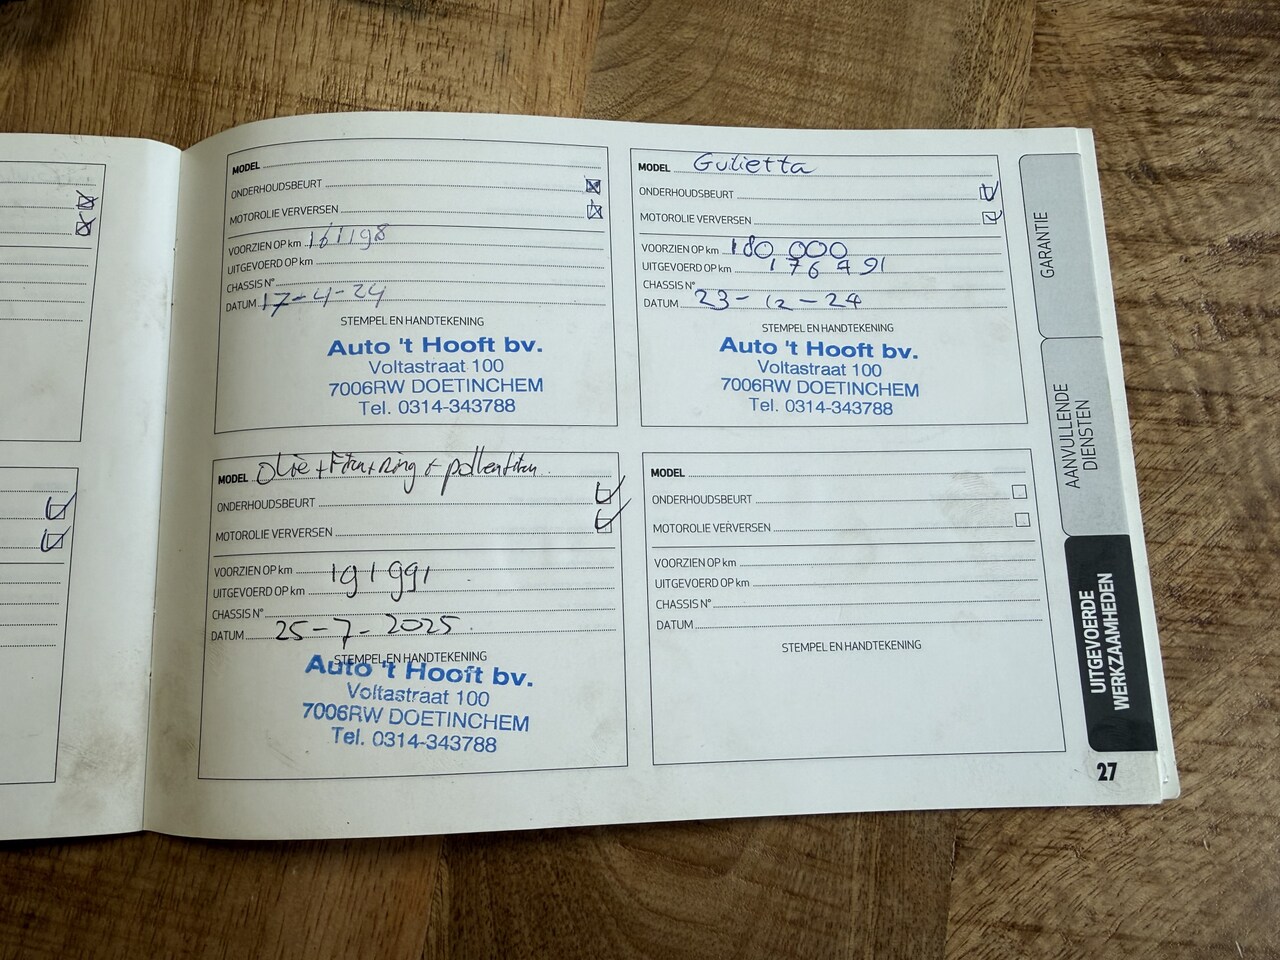 MODEL
ONDERHOUDSBEURT
MOTOROLIE VERVERSEN
VOORZIEN OP km 161198
UITGEVOERD OP km
CHASSIS N°
DATUM 17-4-24
STEMPEL EN HANDTEKENING
Auto 't Hooft bv.
Voltastraat 100
7006RW DOETINCHEM
Tel. 0314-343788
MODEL Gulietta
ONDERHOUDSBEURT
MOTOROLIE VERVERSEN
VOORZIEN OP km 180 000
UITGEVOERD OP km
CHASSIS N°
DATUM 23-12-24
STEMPEL EN HANDTEKENING
Auto 't Hooft bv.
Voltastraat 100
7006RW DOETINCHEM
Tel. 0314-343788
MODEL Olie +
ONDERHOUDSBEURT
MOTOROLIE VERVERSEN
VOORZIEN OP km 191991
UITGEVOERD OP km
CHASSIS N°
DATUM 25-7-2025
STEMPEL EN HANDTEKENING
Auto 't Hooft bv.
Voltastraat 100
7006RW DOETINCHEM
Tel. 0314-343788
MODEL
ONDERHOUDSBEURT
MOTOROLIE VERVERSEN
VOORZIEN OP km
UITGEVOERD OP km
CHASSIS N°
DATUM
STEMPEL EN HANDTEKENING
GARANTIE
AANVULLENDE
DIENSTEN
UITGEVOERDE
WERKZAAMHEDEN
27